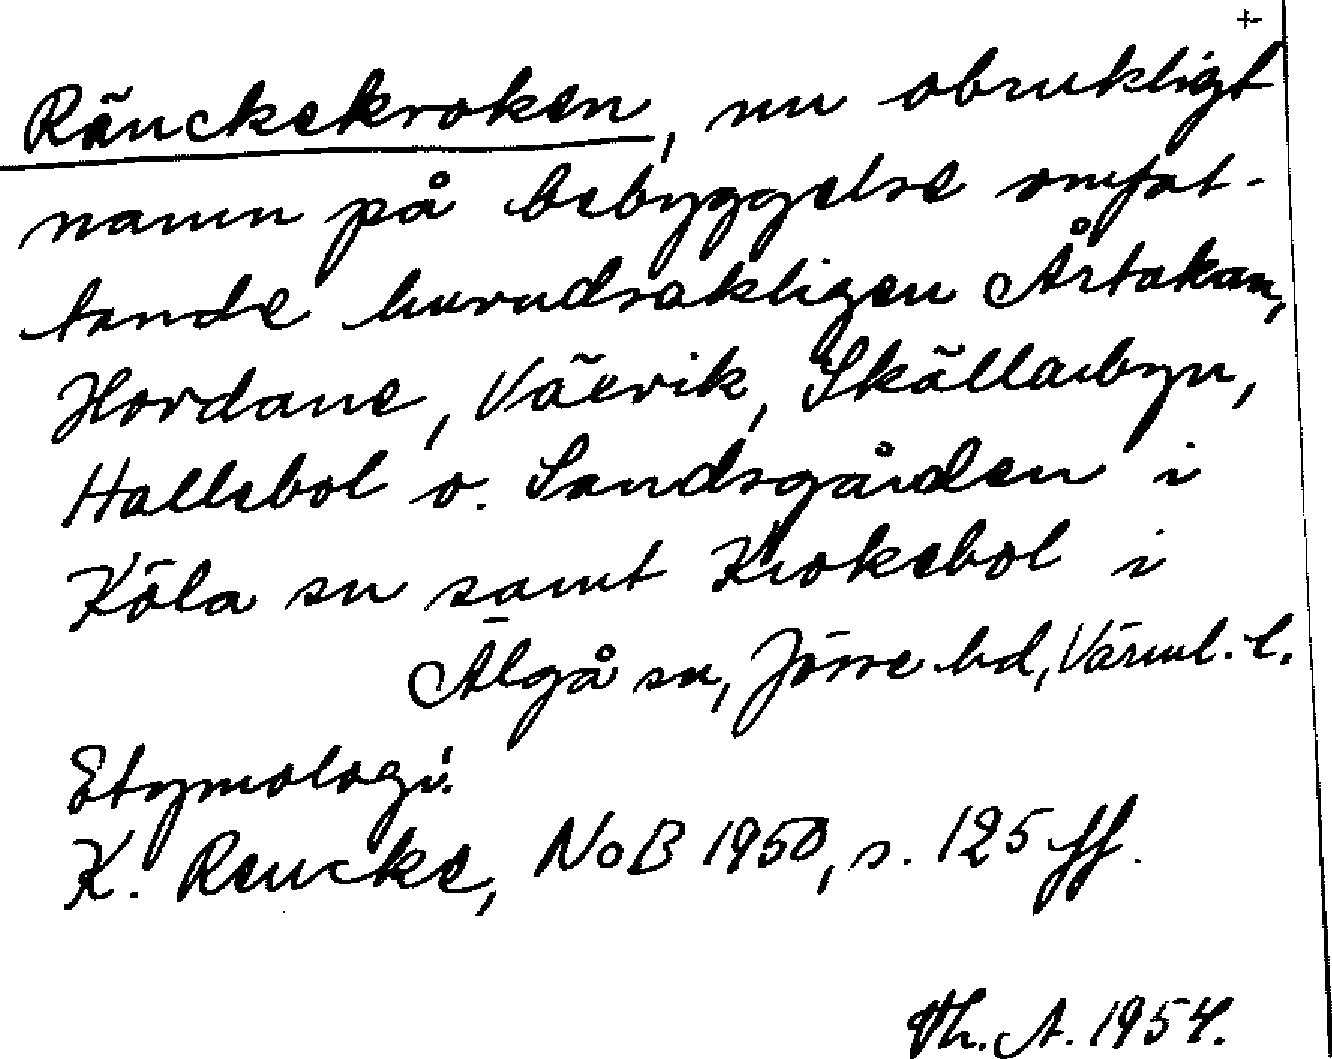 +-
Ränckekroken, nu obrukligt
namn på bebyggelse omfat-
tande huvudsakligen Årtakan,
Hordane, Väevik, Skällarbyn,
Hallebol o. Sandsgården i
Köla sn samt Krokebol i
Älgå sn, Jösse hd, Värml. l.
Etymologi.
K. Rencke, NoB 1950, s. 125 ff.
Th. A. 1954.